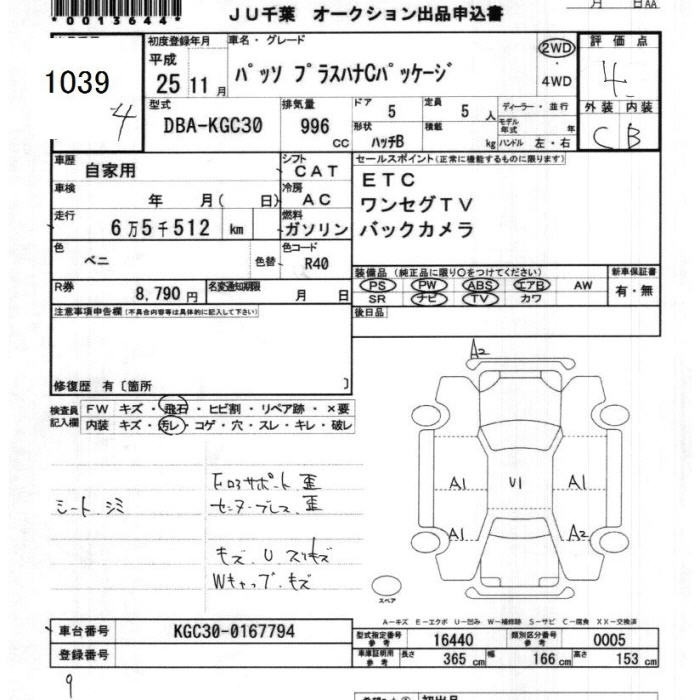 月 日AA
*0013644*
JU千葉 オークション出品申込書
1039
4
初度登録年月
平成
25 11 月
車名・グレード
パッソ プラスハナCパッケージ
2WD
・
4WD
評価点
4
外装 内装
C B
型式
DBA-KGC30
排気量
996
CC
ドア
5
定員
5 人
形状
ハッチB
積載
kg
ディーラー・並行
モデル年式 年
ハンドル 左・右
車歴
自家用
シフト
CAT
車検
年 月( 日)
冷房
AC
走行
6万5千512 km
燃料
ガソリン
色
ベニ
色替
色コード
R40
R券
8,790円
名変通知期限
月 日
セールスポイント(正常に機能するものに限ります)
ETC
ワンセグTV
バックカメラ
装備品(純正品に限り○をつけてください)
PS PW ABS エアB AW
SR ナビ TV カワ
新車保証書
有・無
後日品
注意事項申告欄(不具合内容等は具体的に記入して下さい)
修復歴 有〔箇所 〕
検査員
記入欄
FW キズ・飛石・ヒビ割・リペア跡・×要
内装 キズ・汚レ・コゲ・穴・スレ・キレ・破レ
シート シミ
Fロアサポート 歪
センターブレス 歪
キズ、U スリキズ
Wキャップ キズ
A2
A1
U1
A1
A1
A2
スペア
A-キズ E-エクボ U-凹み W-補修跡 S-サビ C-腐食 XX-交換済
車台番号
KGC30-0167794
登録番号
型式指定番号
参考
16440
類別区分番号
参考
0005
車庫証明用
参考
長さ 365 cm
幅 166 cm
高さ 153 cm
9
初出品